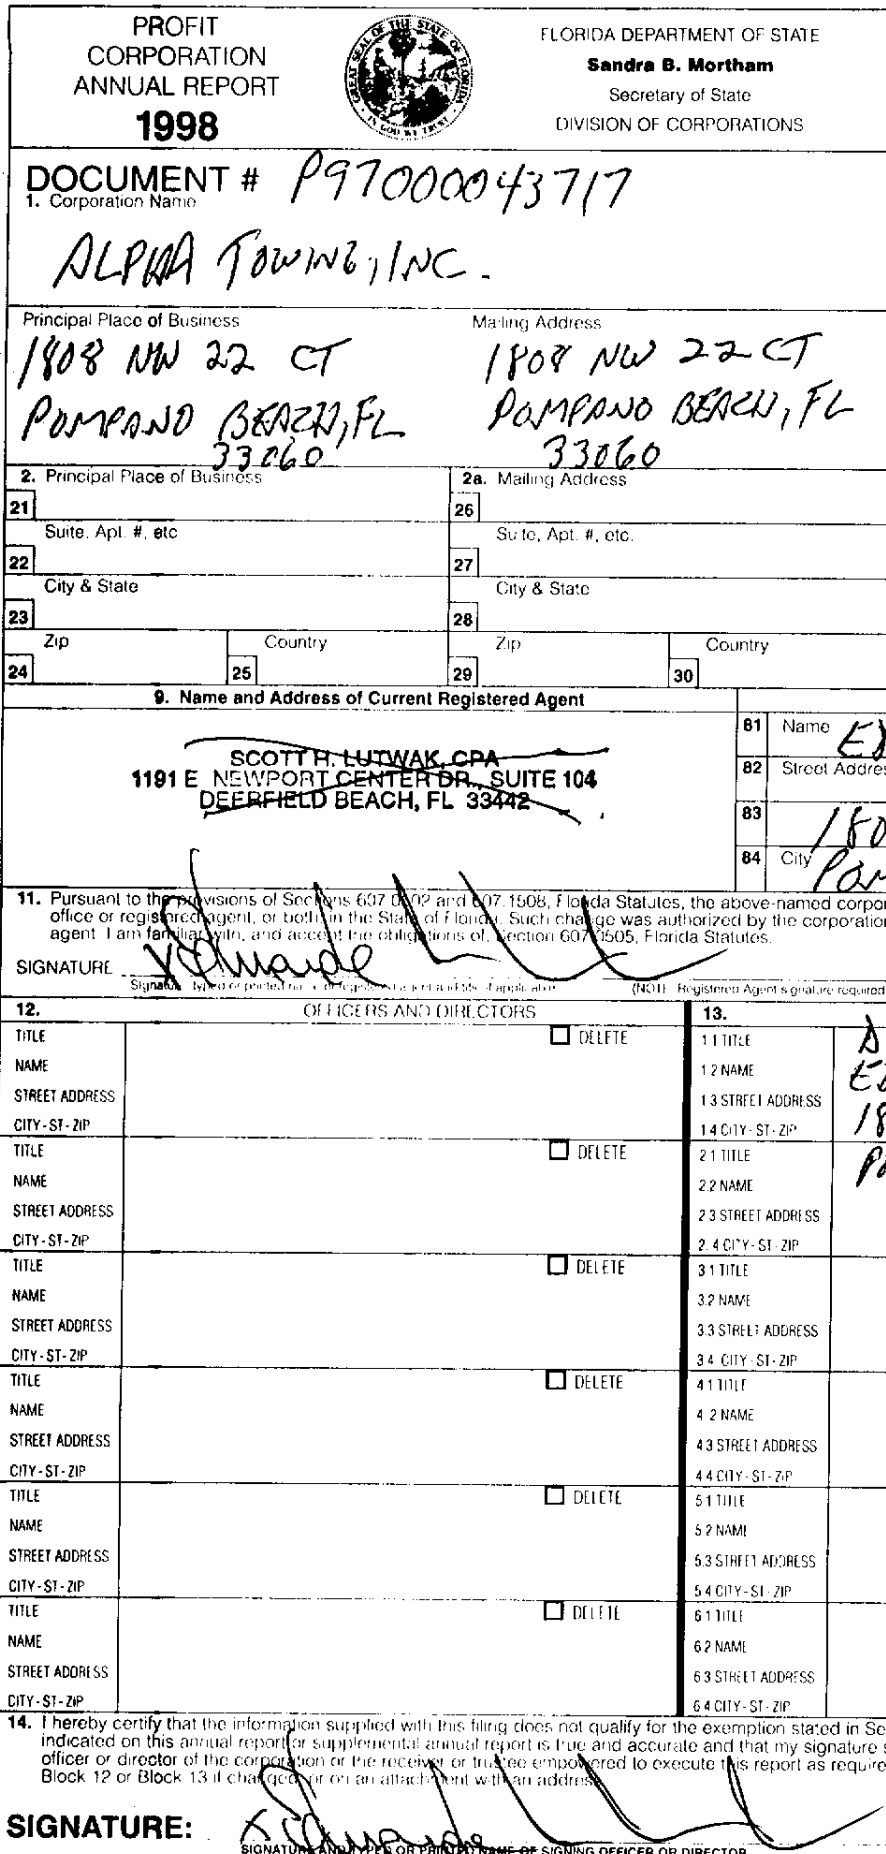 PROFIT
CORPORATION
ANNUAL REPORT
1998
GREAT SEAL OF THE STATE OF FLORIDA
IN GOD WE TRUST
FLORIDA DEPARTMENT OF STATE
Sandra B. Mortham
Secretary of State
DIVISION OF CORPORATIONS
DOCUMENT # P97000043717
1. Corporation Name
ALPHA TOWING, INC.
Principal Place of Business
1808 NW 22 CT
POMPANO BEACH, FL
33060
Mailing Address
1808 NW 22 CT
POMPANO BEACH, FL
33060
2. Principal Place of Business
21
Suite, Apt. #, etc
22
City & State
23
Zip
24
Country
25
2a. Mailing Address
26
Suite, Apt. #, etc.
27
City & State
28
Zip
29
Country
30
9. Name and Address of Current Registered Agent
SCOTT H. LUTWAK, CPA
1191 E NEWPORT CENTER DR., SUITE 104
DEERFIELD BEACH, FL 33442
81 Name
82 Street Addres
83 180
84 City Pom
11. Pursuant to the provisions of Sections 607.0502 and 607.1508, Florida Statutes, the above-named corpor
office or registered agent, or both, in the State of Florida. Such change was authorized by the corporation
agent. I am familiar with, and accept the obligations of, Section 607.0505, Florida Statutes.
SIGNATURE
Signature, typed or printed name of registered agent and title if applicable
(NOTE: Registered Agent signature required
12. OFFICERS AND DIRECTORS
TITLE DELETE
NAME
STREET ADDRESS
CITY-ST-ZIP
TITLE DELETE
NAME
STREET ADDRESS
CITY-ST-ZIP
TITLE DELETE
NAME
STREET ADDRESS
CITY-ST-ZIP
TITLE DELETE
NAME
STREET ADDRESS
CITY-ST-ZIP
TITLE DELETE
NAME
STREET ADDRESS
CITY-ST-ZIP
TITLE DELETE
NAME
STREET ADDRESS
CITY-ST-ZIP
13.
1.1 TITLE D
1.2 NAME
1.3 STREET ADDRESS 18
1.4 CITY-ST-ZIP
2.1 TITLE
2.2 NAME
2.3 STREET ADDRESS
2.4 CITY-ST-ZIP
3.1 TITLE
3.2 NAME
3.3 STREET ADDRESS
3.4 CITY-ST-ZIP
4.1 TITLE
4.2 NAME
4.3 STREET ADDRESS
4.4 CITY-ST-ZIP
5.1 TITLE
5.2 NAME
5.3 STREET ADDRESS
5.4 CITY-ST-ZIP
6.1 TITLE
6.2 NAME
6.3 STREET ADDRESS
6.4 CITY-ST-ZIP
14. I hereby certify that the information supplied with this filing does not qualify for the exemption stated in Se
indicated on this annual report or supplemental annual report is true and accurate and that my signature s
officer or director of the corporation or the receiver or trustee empowered to execute this report as require
Block 12 or Block 13 if changed, or on an attachment with an address
SIGNATURE:
SIGNATURE AND TYPED OR PRINTED NAME OF SIGNING OFFICER OR DIRECTOR